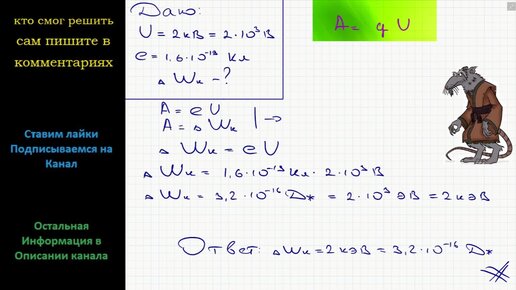 кто смог решить
сам пишите в
комментариях
Ставим лайки
Подписываемся на
Канал
Остальная
Информация в
Описании канала
Дано:
U = 2кВ = 2·10³В
e = 1,6·10⁻¹⁹ Кл
△Wк - ?
A = qU
A = eU
A = △Wк
△Wк = eU
△Wк = 1,6·10⁻¹⁹Кл·2·10³В
△Wк = 3,2·10⁻¹⁶Дж = 2·10³эВ = 2кэВ
Ответ: △Wк = 2кэВ = 3,2·10⁻¹⁶ Дж